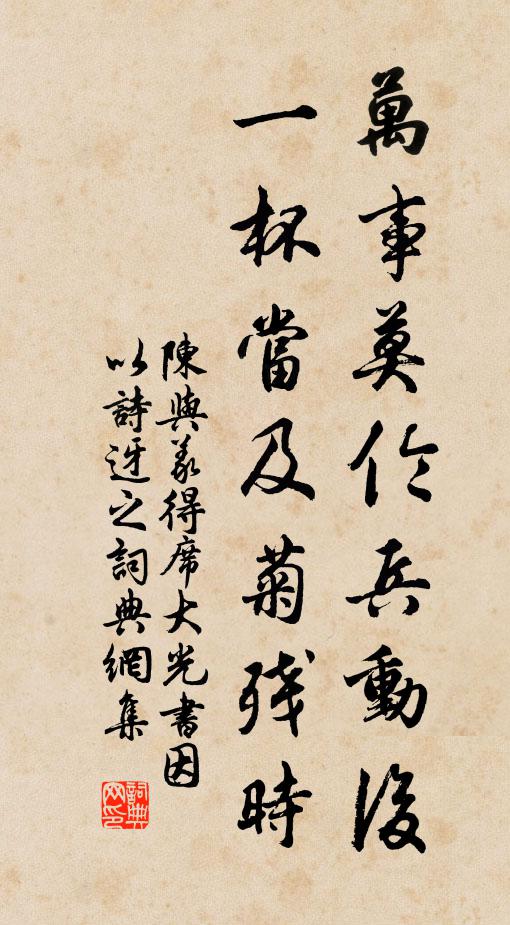 萬事莫伶兵動後
一杯當及菊殘時
陳與義得席大光書因
以詩迓之詞典網集
詞典網印